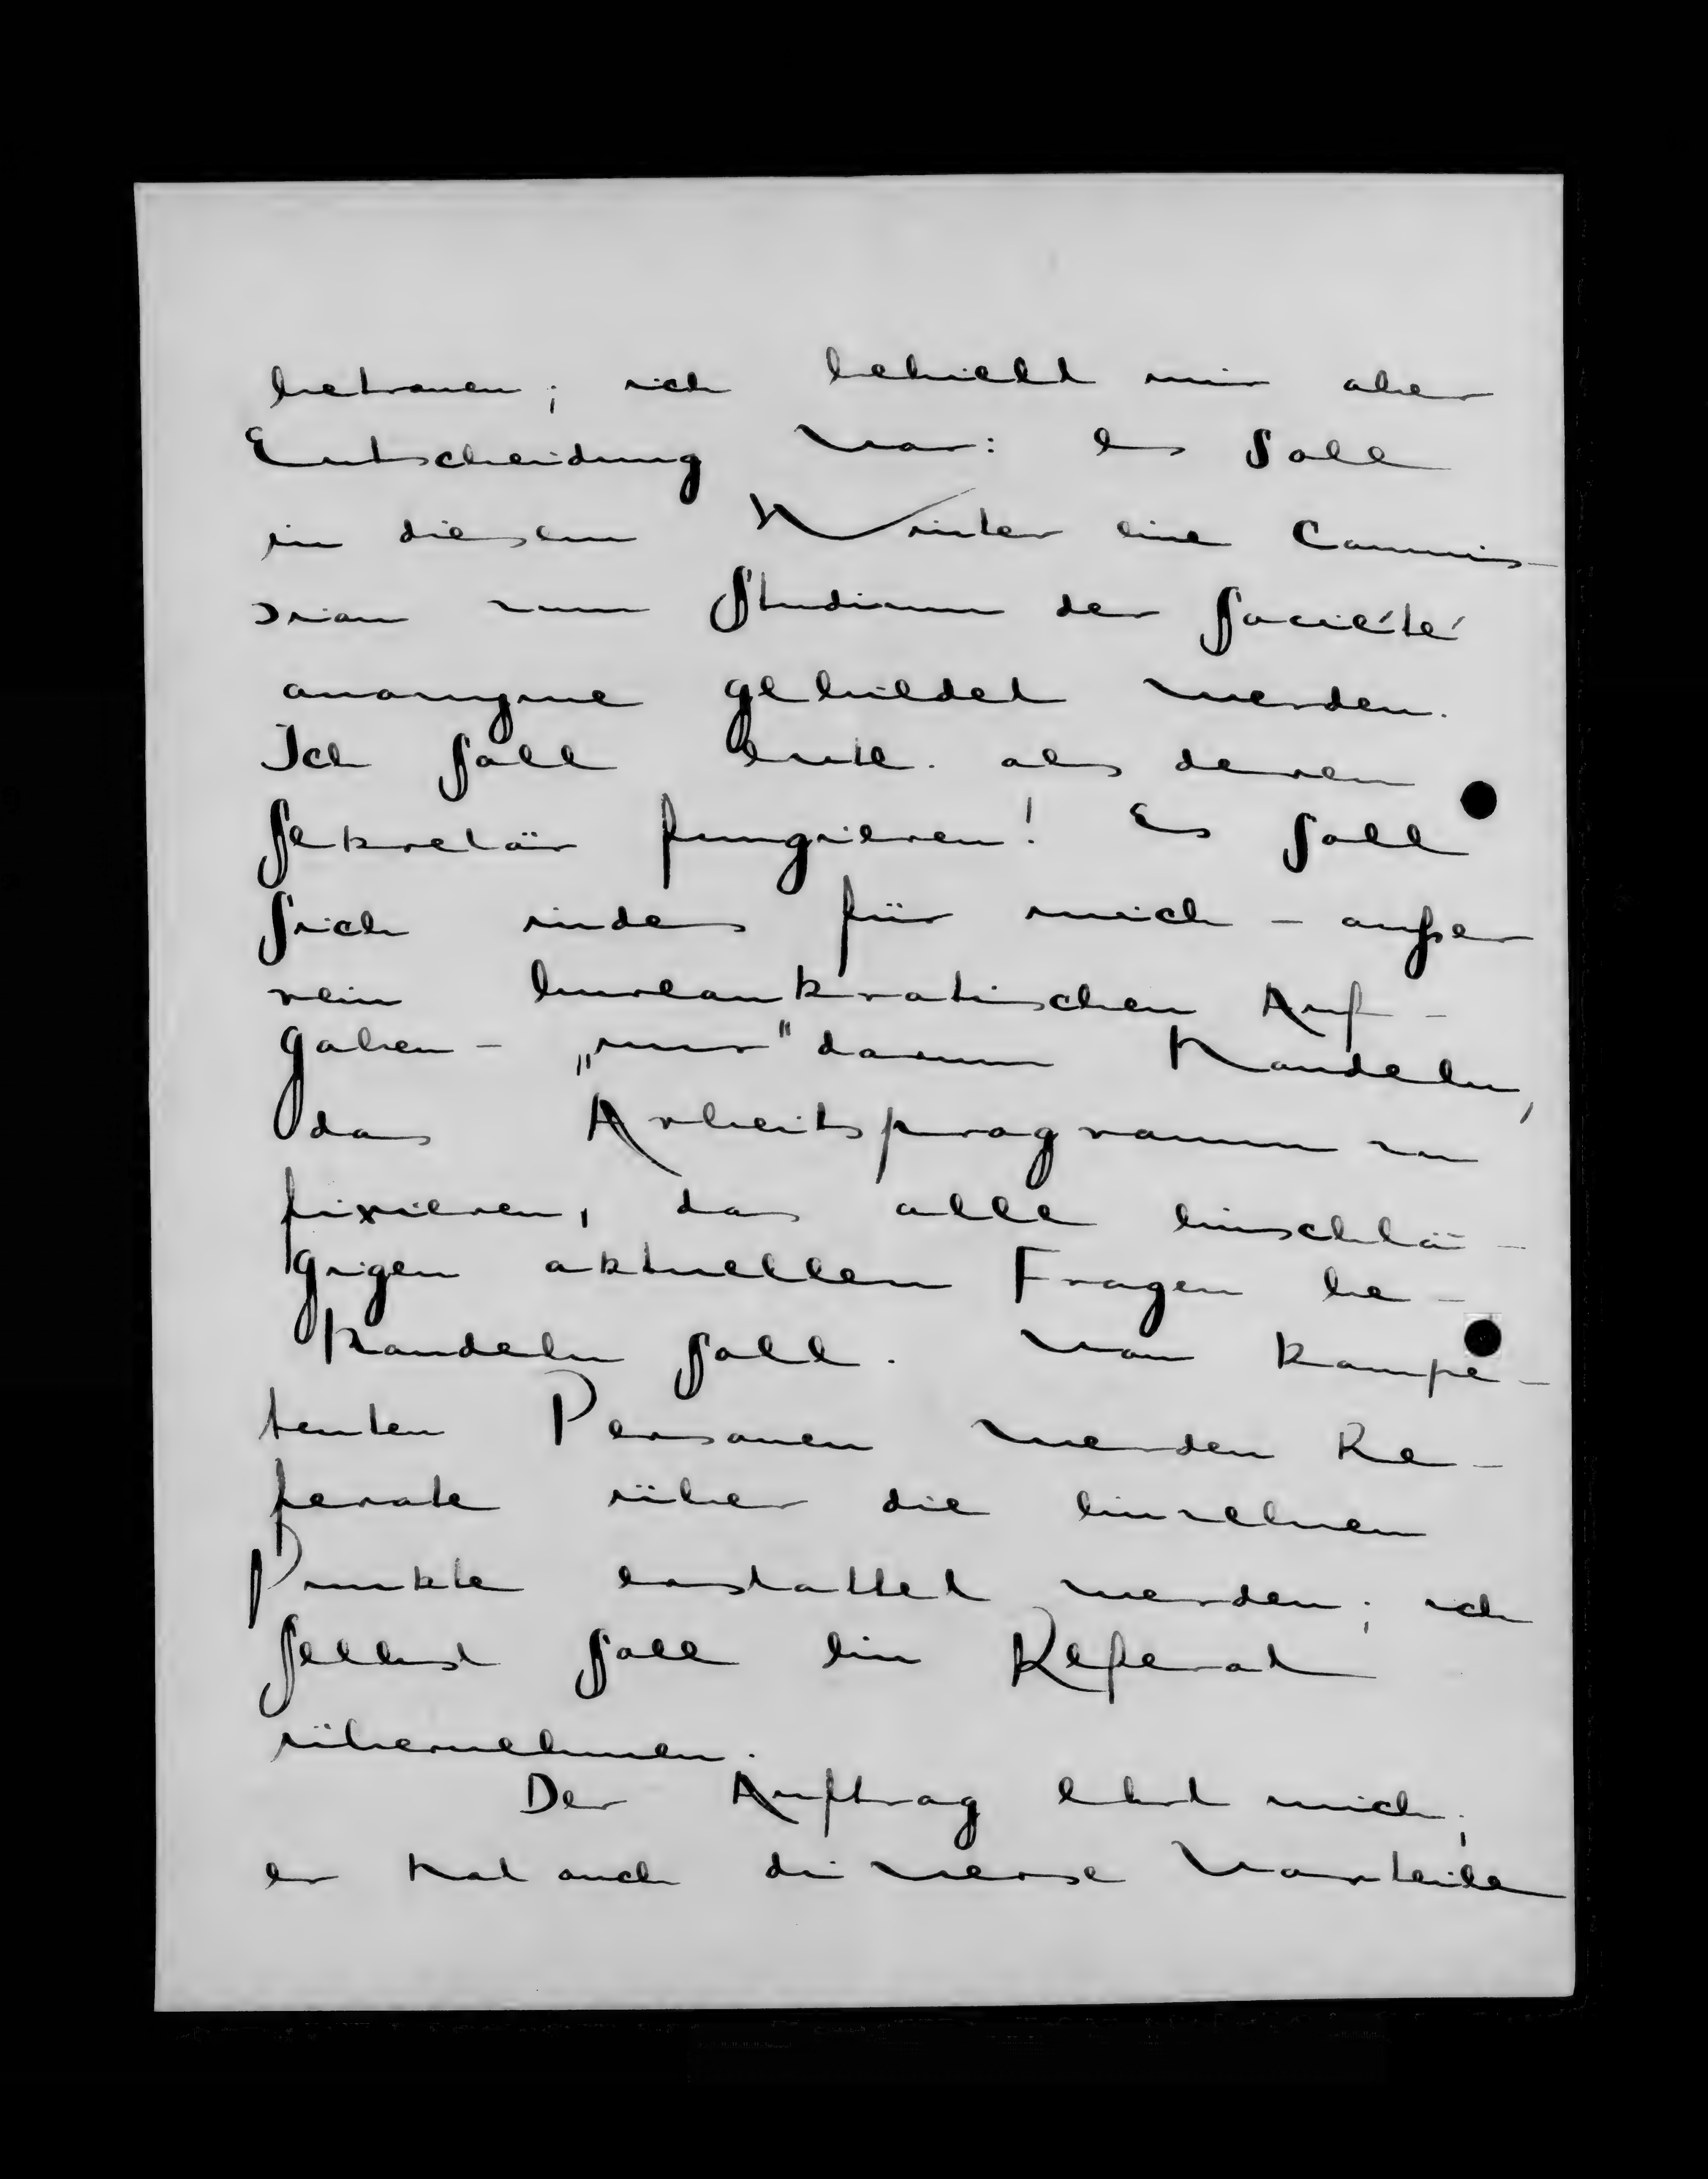 betrauen; ich behielt mir aber
Entscheidung vor: es soll
in diesem Winter eine Commis-
sion zum Studium der Société
anonyme gebildet werden.
Ich soll evtl. als deren
Sekretär fungieren! Es soll
sich indes für mich – außer
rein bureaukratischen Auf-
gaben – „nur" darum handeln,
das Arbeitsprogramm zu
fixieren, das alle einschlä-
gigen aktuellen Fragen be-
handeln soll. Von kompe-
tenten Personen werden Re-
ferate über die einzelnen
Punkte erstattet werden; ich
selbst soll ein Referat
übernehmen.
Der Auftrag ehrt mich;
er hat auch diverse Vorteile